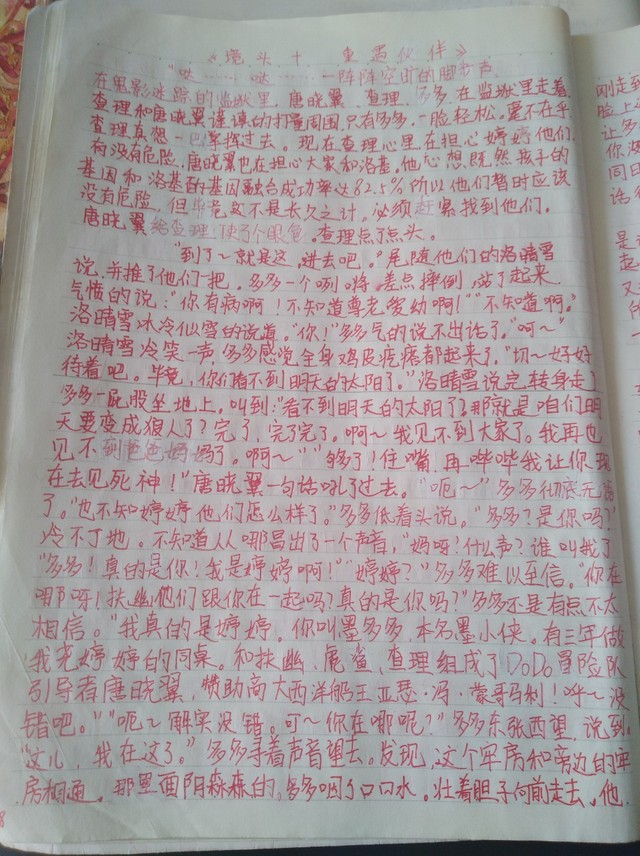 《境头十 重遇伙伴》
“哒……哒……”一阵阵空旷的脚步声
在鬼影迷踪的监狱里，唐晓翼、查理、多多，在监狱里走着
查理和唐晓翼谨慎的打量周围，只有多多一脸轻松。毫不在乎
查理真想一巴掌挥过去。现在查理心里在担心婷婷他们
有没有危险，唐晓翼也在担心大家和洛基。他心想既然孩子的
基因和洛基的基因融合成功率达82.5%所以他们暂时应该
没有危险，但毕竟这不是长久之计，必须赶紧找到他们。
唐晓翼给查理使了个眼色，查理点了点头。
“到了～就是这，进去吧。”尾随他们的洛晴雪
说，并推了他们一把，多多一个咧咧，差点摔倒，站了起来
气愤的说：“你有病啊！不知道尊老爱幼啊！”“不知道啊。”
洛晴雪冰冷似雪的说道。“你！”多多气的说不出话了。“呵～”
洛晴雪冷笑一声，多多感觉全身鸡皮疙瘩都起来了，“切～好好
待着吧。毕竟，你们看不到明天的太阳了。”洛晴雪说完，转身走了
多多一屁股坐地上。叫到：“看不到明天的太阳了？那就是咱们明
天要变成狼人了？完了，完了完了。啊～我见不到大家了。我再也
见不到爸爸妈妈了。啊～”“够了！住嘴，再哔哔我让你现
在去见死神！”唐晓翼一句话吼了过去。“呃～”多多彻底无语
了。“也不知婷婷他们怎么样了。”多多低着头说。“多多？是你吗？”
冷不丁地。不知道从哪冒出了一个声音，“妈呀！什么声？谁叫我了
“多多！真的是你！我是婷婷啊！”“婷婷？”多多难以至信。“你在
哪呀！扶幽他们跟你在一起吗？真的是你吗？”多多还是有点不太
相信。“我真的是婷婷，你叫墨多多，本名墨小侠。有三年做
我尧婷婷的同桌。和扶幽、虎鲨、查理组成了DoDo冒险队
引导者唐晓翼，赞助商大西洋船王亚瑟·冯·蒙哥马利！呼～没
错吧。”“呃～确实没错。可～你在哪呢？”多多东张西望，说到。
“这儿，我在这了。”多多寻着声音望去。发现，这个牢房和旁边的牢
房相通，那里面阴森森的。多多咽了口口水。壮着胆子向前走去，他
刚走到
脸上